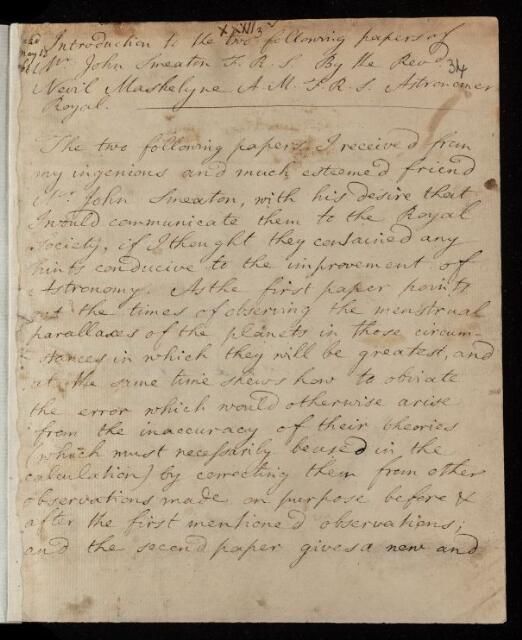 XXXIII
34
Introduction to the two following papers of
Mr. John Smeaton F. R. S. By the Revd.
Nevil Maskelyne A. M. F. R. S. Astronomer
Royal.
The two following papers I received from
my ingenious and much esteemed friend
Mr. John Smeaton, with his desire that
I would communicate them to the Royal
Society, if I thought they contained any
hints conducive to the improvement of
Astronomy. As the first paper points
out the times of observing the menstrual
parallaxes of the planets in those circum-
stances in which they will be greatest, and
at the same time shews how to obviate
the error which would otherwise arise
from the inaccuracy of their theories
(which must necessarily be used in the
calculation) by correcting them from other
observations made on purpose before &
after the first mentioned observations;
and the second paper gives a new and